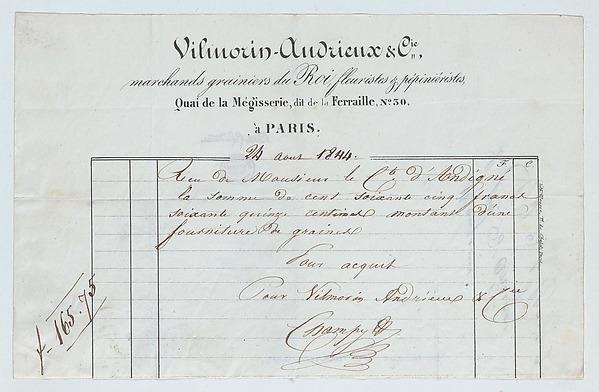 Vilmorin-Andrieux & Cie,
marchands grainiers du Roi fleuristes & pépiniéristes,
Quai de la Mégisserie, dit de la Ferraille, No 30.
à PARIS.
24 aout 1844.
F. C.
Recu de Monsieur le Cte d'Andigné
la somme de cent soixante cinq francs
soixante quinze centimes montant d'une
fourniture de graines
Pour acquit
Pour Vilmorin Andrieux & Cie
Champy
f. 165.75